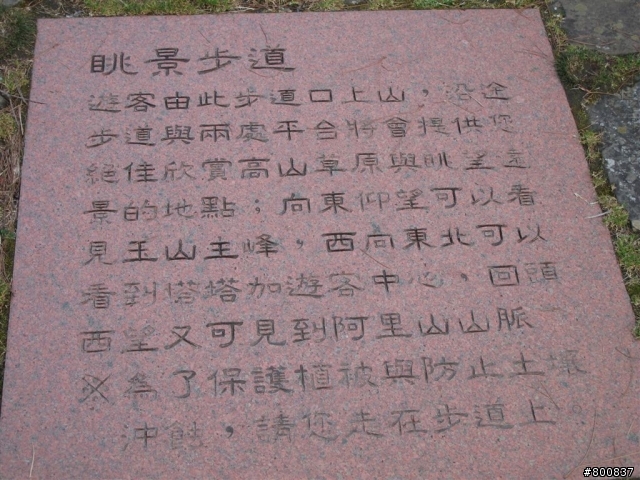 眺景步道
遊客由此步道口上山，沿途
步道與兩處平台將會提供您
絕佳欣賞高山草原與眺望遠
景的地點；向東仰望可以看
見玉山主峰，西向東北可以
看到塔塔加遊客中心，回頭
西望又可見到阿里山山脈
※為了保護植被與防止土壤
沖蝕，請您走在步道上
#800837